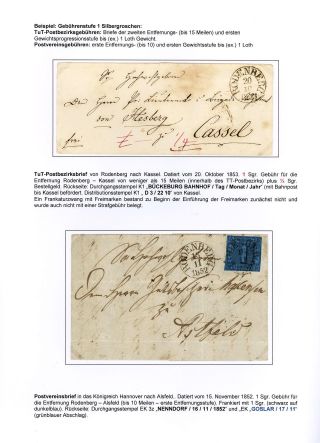 Beispiel: Gebührenstufe 1 Silbergroschen:
TuT-Postbezirksgebühren: Briefe der zweiten Entfernungs- (bis 15 Meilen) und ersten
Gewichtsprogressionsstufe bis (ex.) 1 Loth Gewicht.
Postvereinsgebühren: erste Entfernungs- (bis 10) und ersten Gewichtsstufe bis (ex.) 1 Loth
RODENBERG
20
10
von Hesberg
Cassel
TuT-Postbezirksbrief von Rodenberg nach Kassel. Datiert vom 20. Oktober 1853. 1 Sgr. Gebühr für die
Entfernung Rodenberg – Kassel von weniger als 15 Meilen (innerhalb des TT-Postbezirks) plus ¼ Sgr.
Bestellgeld. Rückseite: Durchgangsstempel K1 „BÜCKEBURG BAHNHOF / Tag / Monat / Jahr" (mit Bahnpost
bis Kassel befördert. Distributionsstempel K1 „ D 3 / 22 10" von Kassel.
Ein Frankaturzwang mit Freimarken bestand zu Beginn der Einführung der Freimarken zunächst nicht und
wurde auch nicht mit einer Strafgebühr belegt.
RODENBERG
11
1852
Alsfeld
Postvereinsbrief in das Königreich Hannover nach Alsfeld. Datiert vom 15. November 1852, 1 Sgr. Gebühr für die
Entfernung Rodenberg – Alsfeld (bis 10 Meilen – erste Entfernungsstufe). Frankiert mit 1 Sgr. (schwarz auf
dunkelblau). Rückseite: Durchgangsstempel EK 3z „NENNDORF / 16 / 11 / 1852" und „EK „GOSLAR / 17 / 11"
(grünblauer Abschlag).